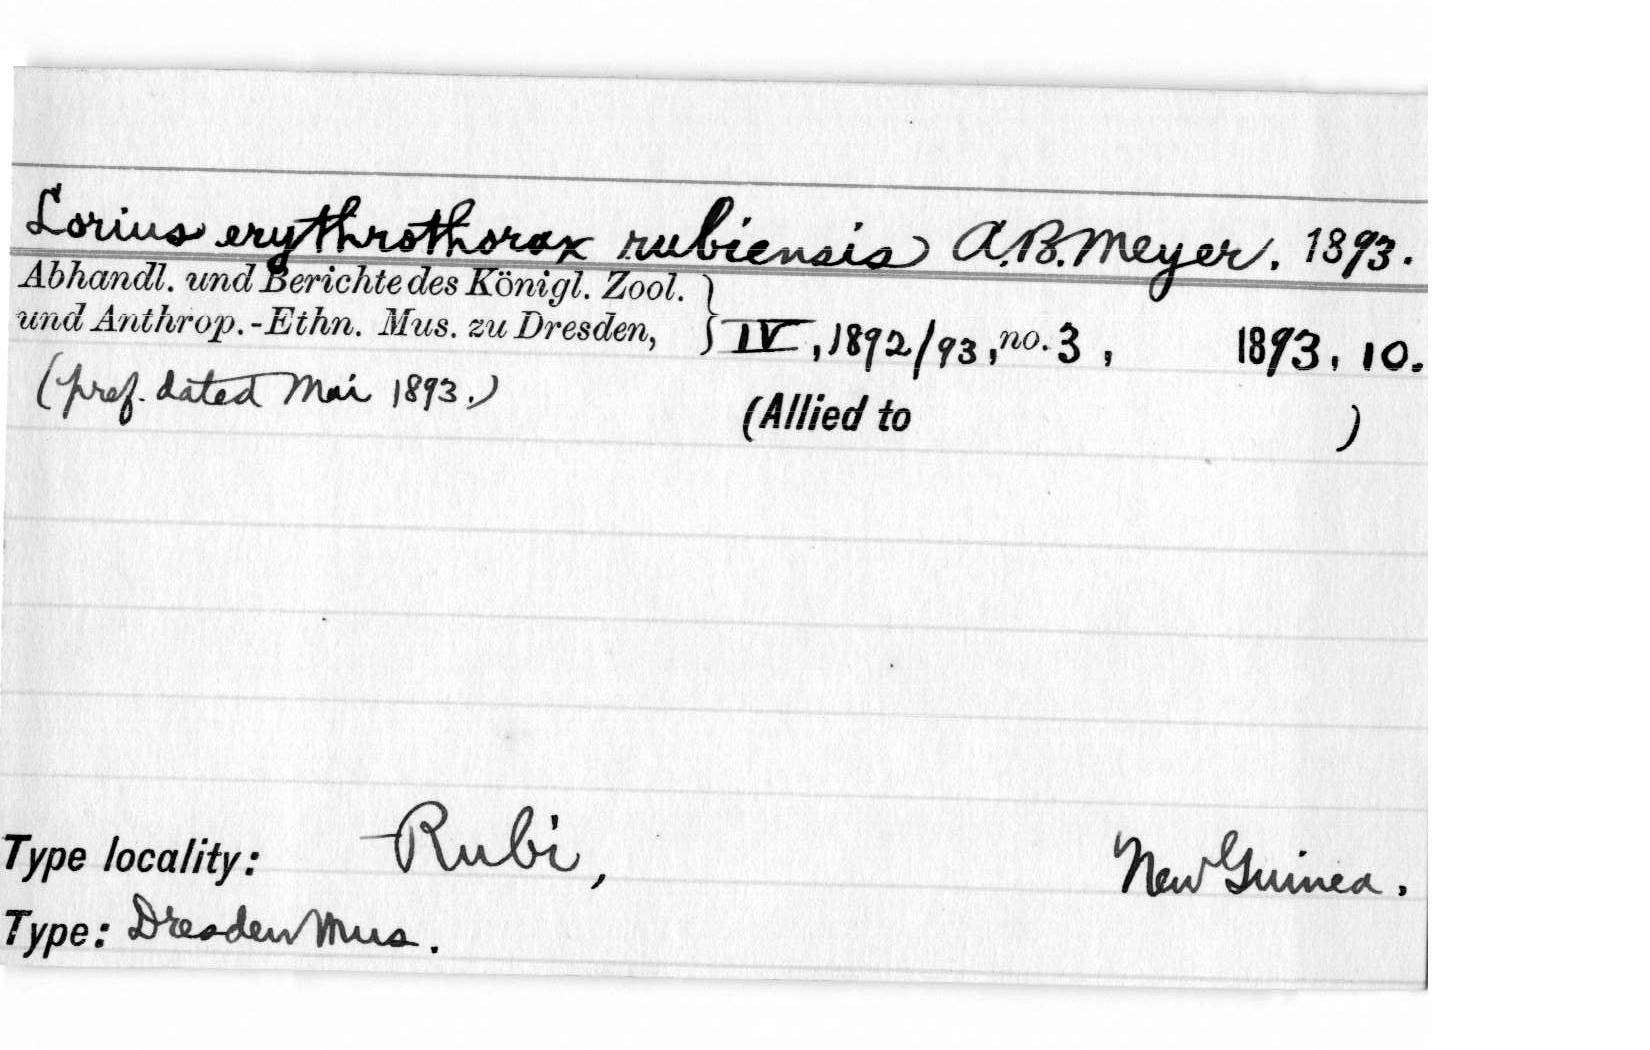 Lorius erythrothorax rubiensis A.B. Meyer. 1893.
Abhandl. und Berichte des Königl. Zool.
und Anthrop.-Ethn. Mus. zu Dresden, } IV, 1892/93, no. 3, 1893, 10.
(pref. dated Mai 1893.)
(Allied to )
Type locality: Rubi, New Guinea.
Type: Dresden Mus.